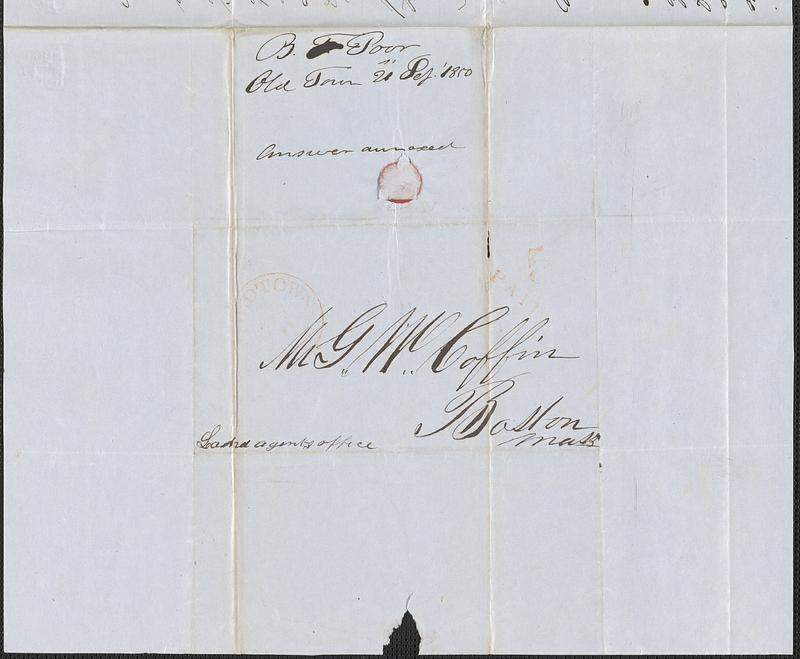 B. F Poor
Old Town 21 Sep. 1850
Answer annexed
OLDTOWN
5
PAID
Mr G. W. Coffin
Boston
Mass
Land agents office